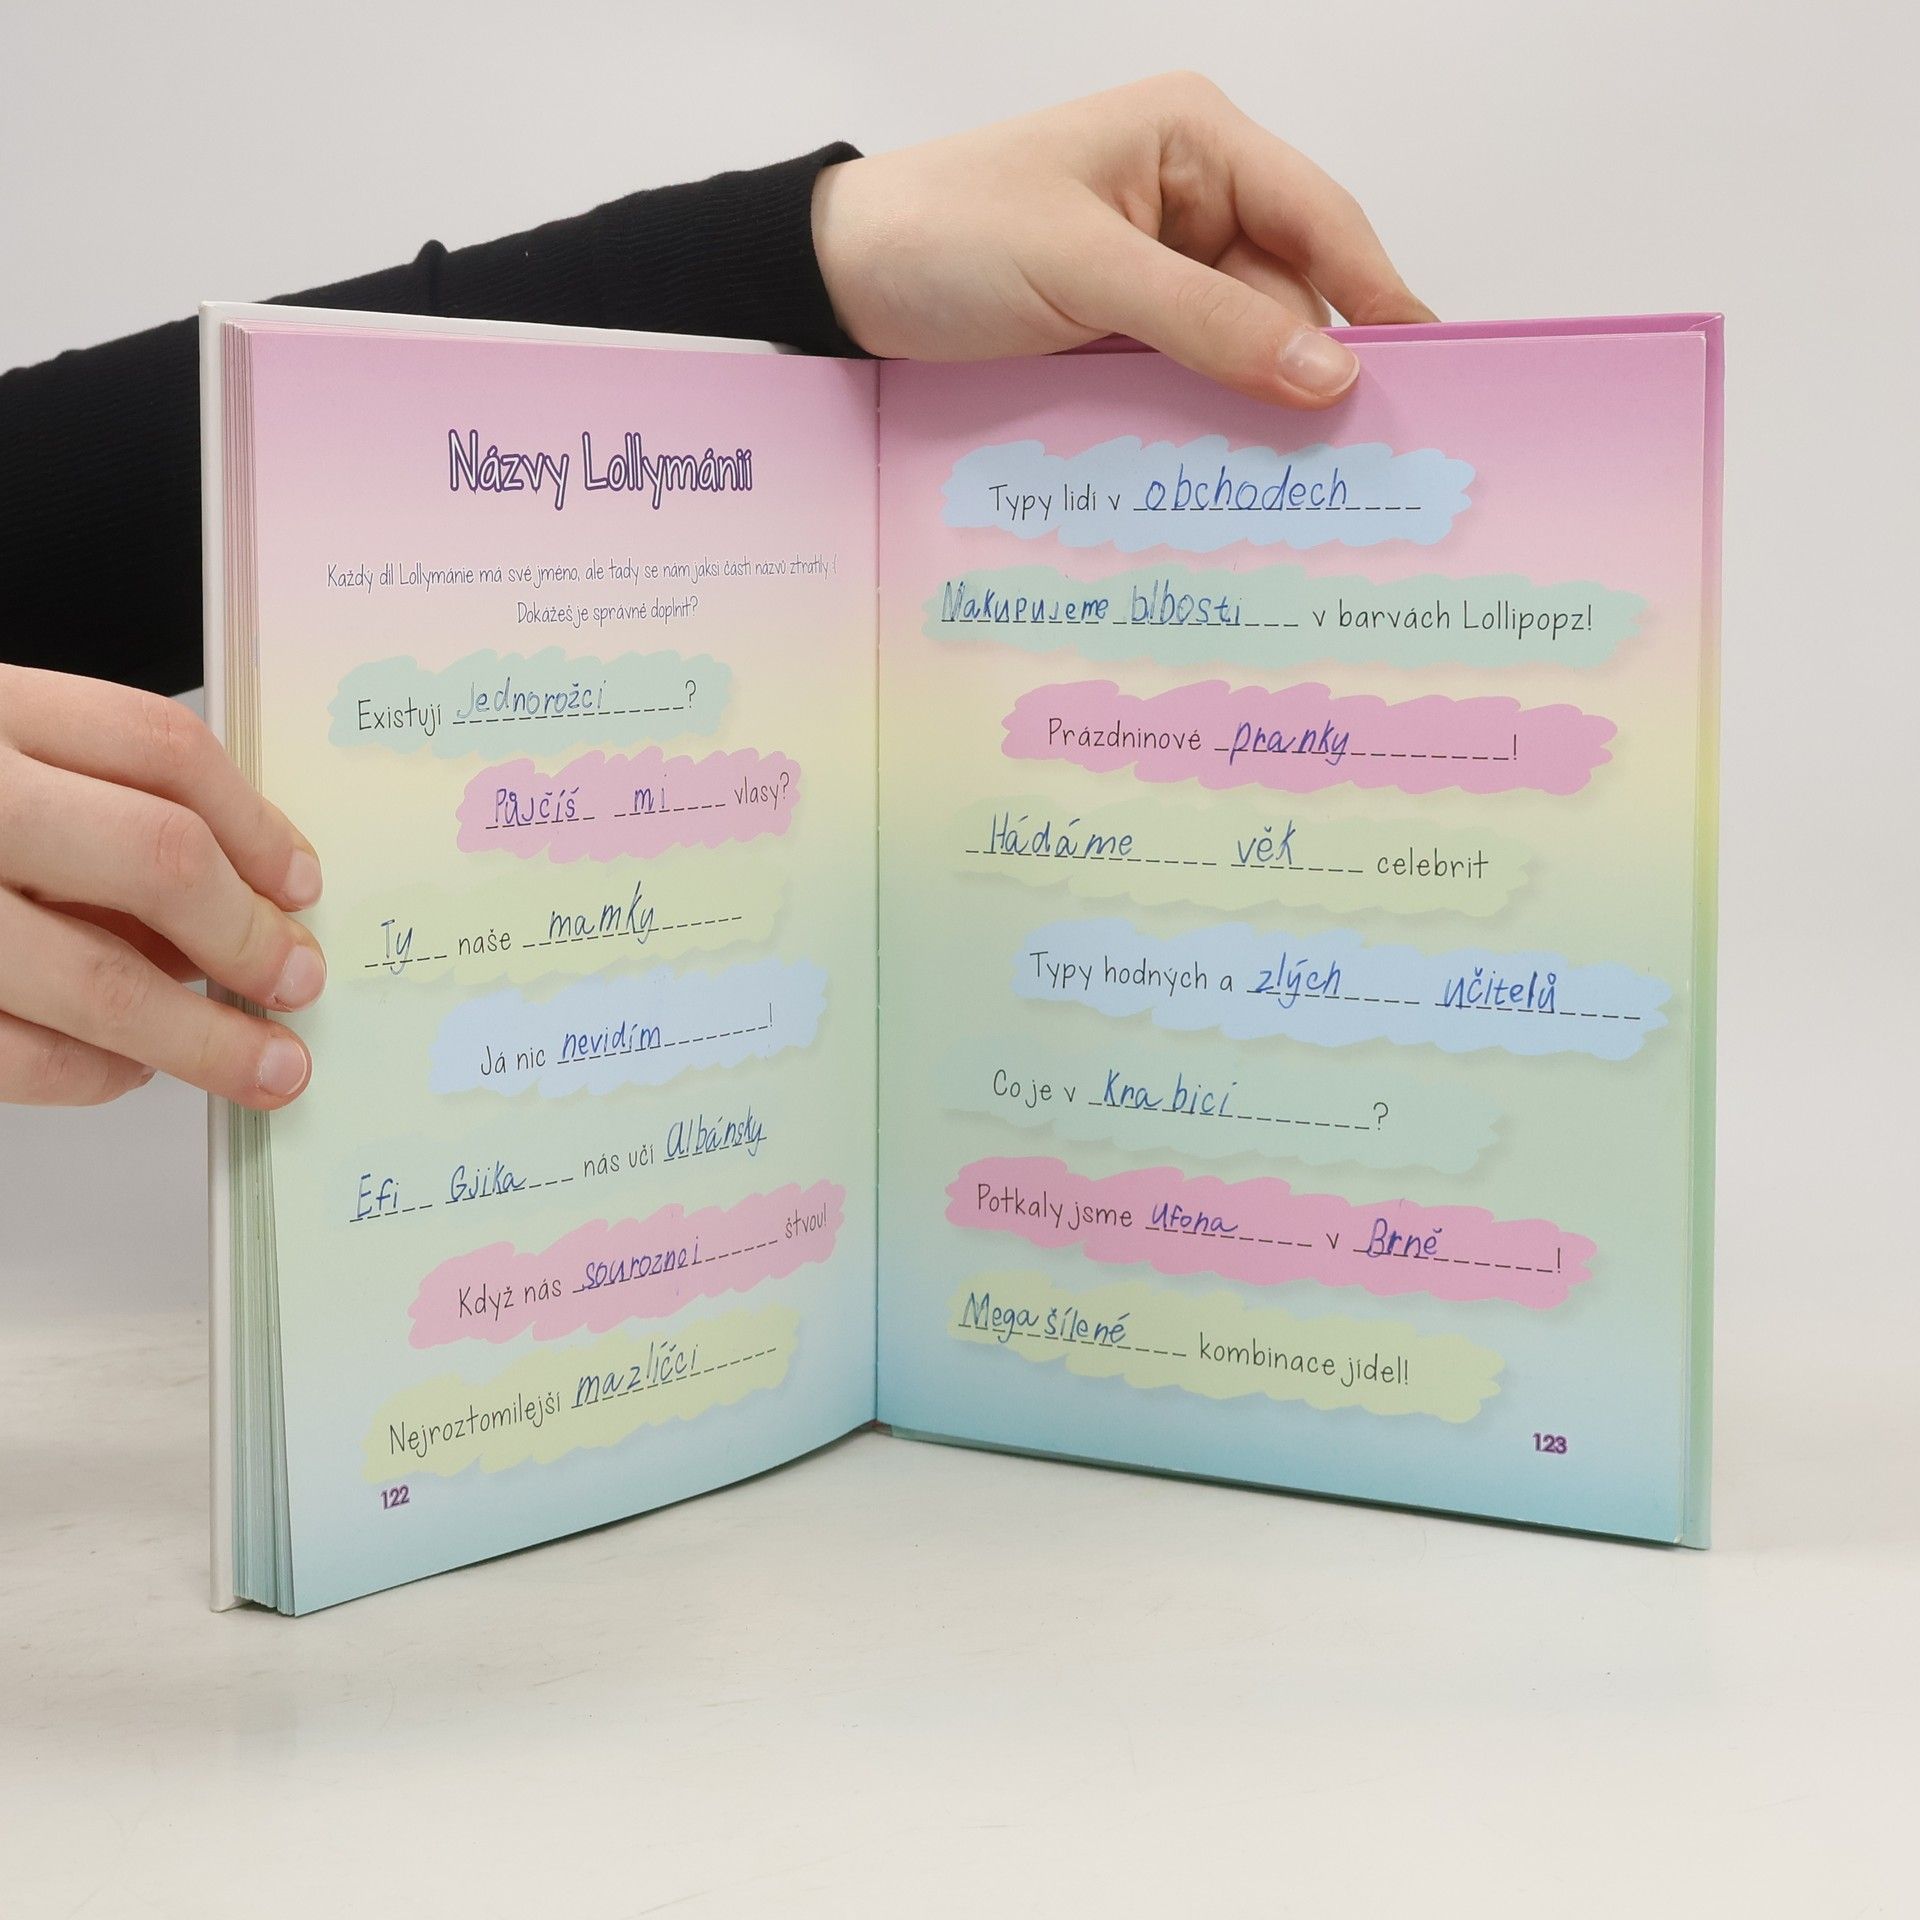 Názvy Lollymánií
Každý díl Lollymánie má své jméno, ale tady se nám jaksi části názvů ztratily :(
Dokážeš je správně doplnit?
Existují Jednorožci?
Půjčíš mi vlasy?
Ty naše mamky
Já nic nevidím!
Efi Gjika nás učí albánsky
Když nás souroznei štvou!
Nejroztomilejší mazlíčci
122
Typy lidí v obchodech
Nakupujeme blbosti v barvách Lollipopz!
Prázdninové pranky!
Hádáme věk celebrit
Typy hodných a zlých učitelů
Co je v krabici?
Potkaly jsme ufona v Brně!
Mega šílené kombinace jídel!
123